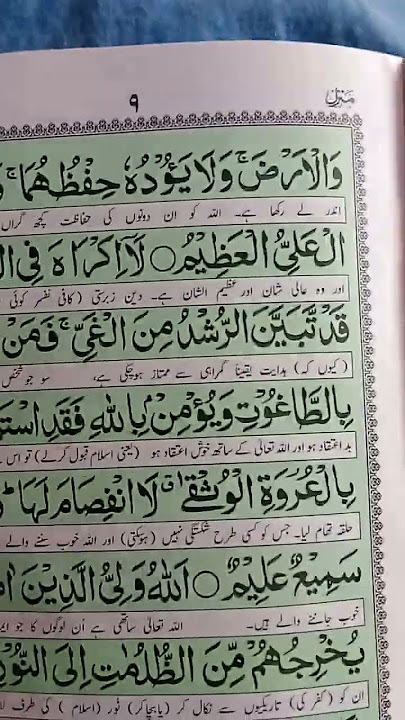 منزل ۹
وَالْاَرْضَ ۚ وَلَا يَـُٔوْدُهٗ حِفْظُهُمَا ۚ
اندر لے رکھا ہے۔ اللہ کو ان دونوں کی حفاظت کچھ گراں
الْعَلِىُّ الْعَظِيْمُ ○ لَاۤ اِكْرَاهَ فِى
اور وہ عالی شان اور عظیم الشان ہے۔ دین زبرتی (کافی نفسر کوئی
قَدْ تَّبَيَّنَ الرُّشْدُ مِنَ الْغَىِّ ۚ فَمَنْ
(کیوں کہ) ہدایت یقیناً گمراہی سے ممتاز ہوچکی ہے، سو جو شخص
بِالطَّاغُوْتِ وَيُؤْمِنْۢ بِاللّٰهِ فَقَدِ
بد اعتقاد ہو اور اللہ تعالیٰ کے ساتھ خوش اعتقاد ہو (یعنی اسلام قبول کرلے) تو اس نے
بِالْعُرْوَةِ الْوُثْقٰى ۗ لَا انْفِصَامَ لَهَا ؕ
حلقہ تھام لیا۔ جس کو کسی طرح شکستگی نہیں (ہوسکتی) اور اللہ خوب سننے والے
سَمِيْعٌ عَلِيْمٌ ○ اَللّٰهُ وَلِىُّ الَّذِيْنَ
خوب جاننے والے ہیں۔ اللہ تعالیٰ ساتھی ہے اُن لوگوں کا جو
يُخْرِجُهُمْ مِّنَ الظُّلُمٰتِ اِلَى النُّوْرِ
ان کو (کفر کی) تاریکیوں سے نکال کر (یا بچاکر) نور (اسلام) کی طرف